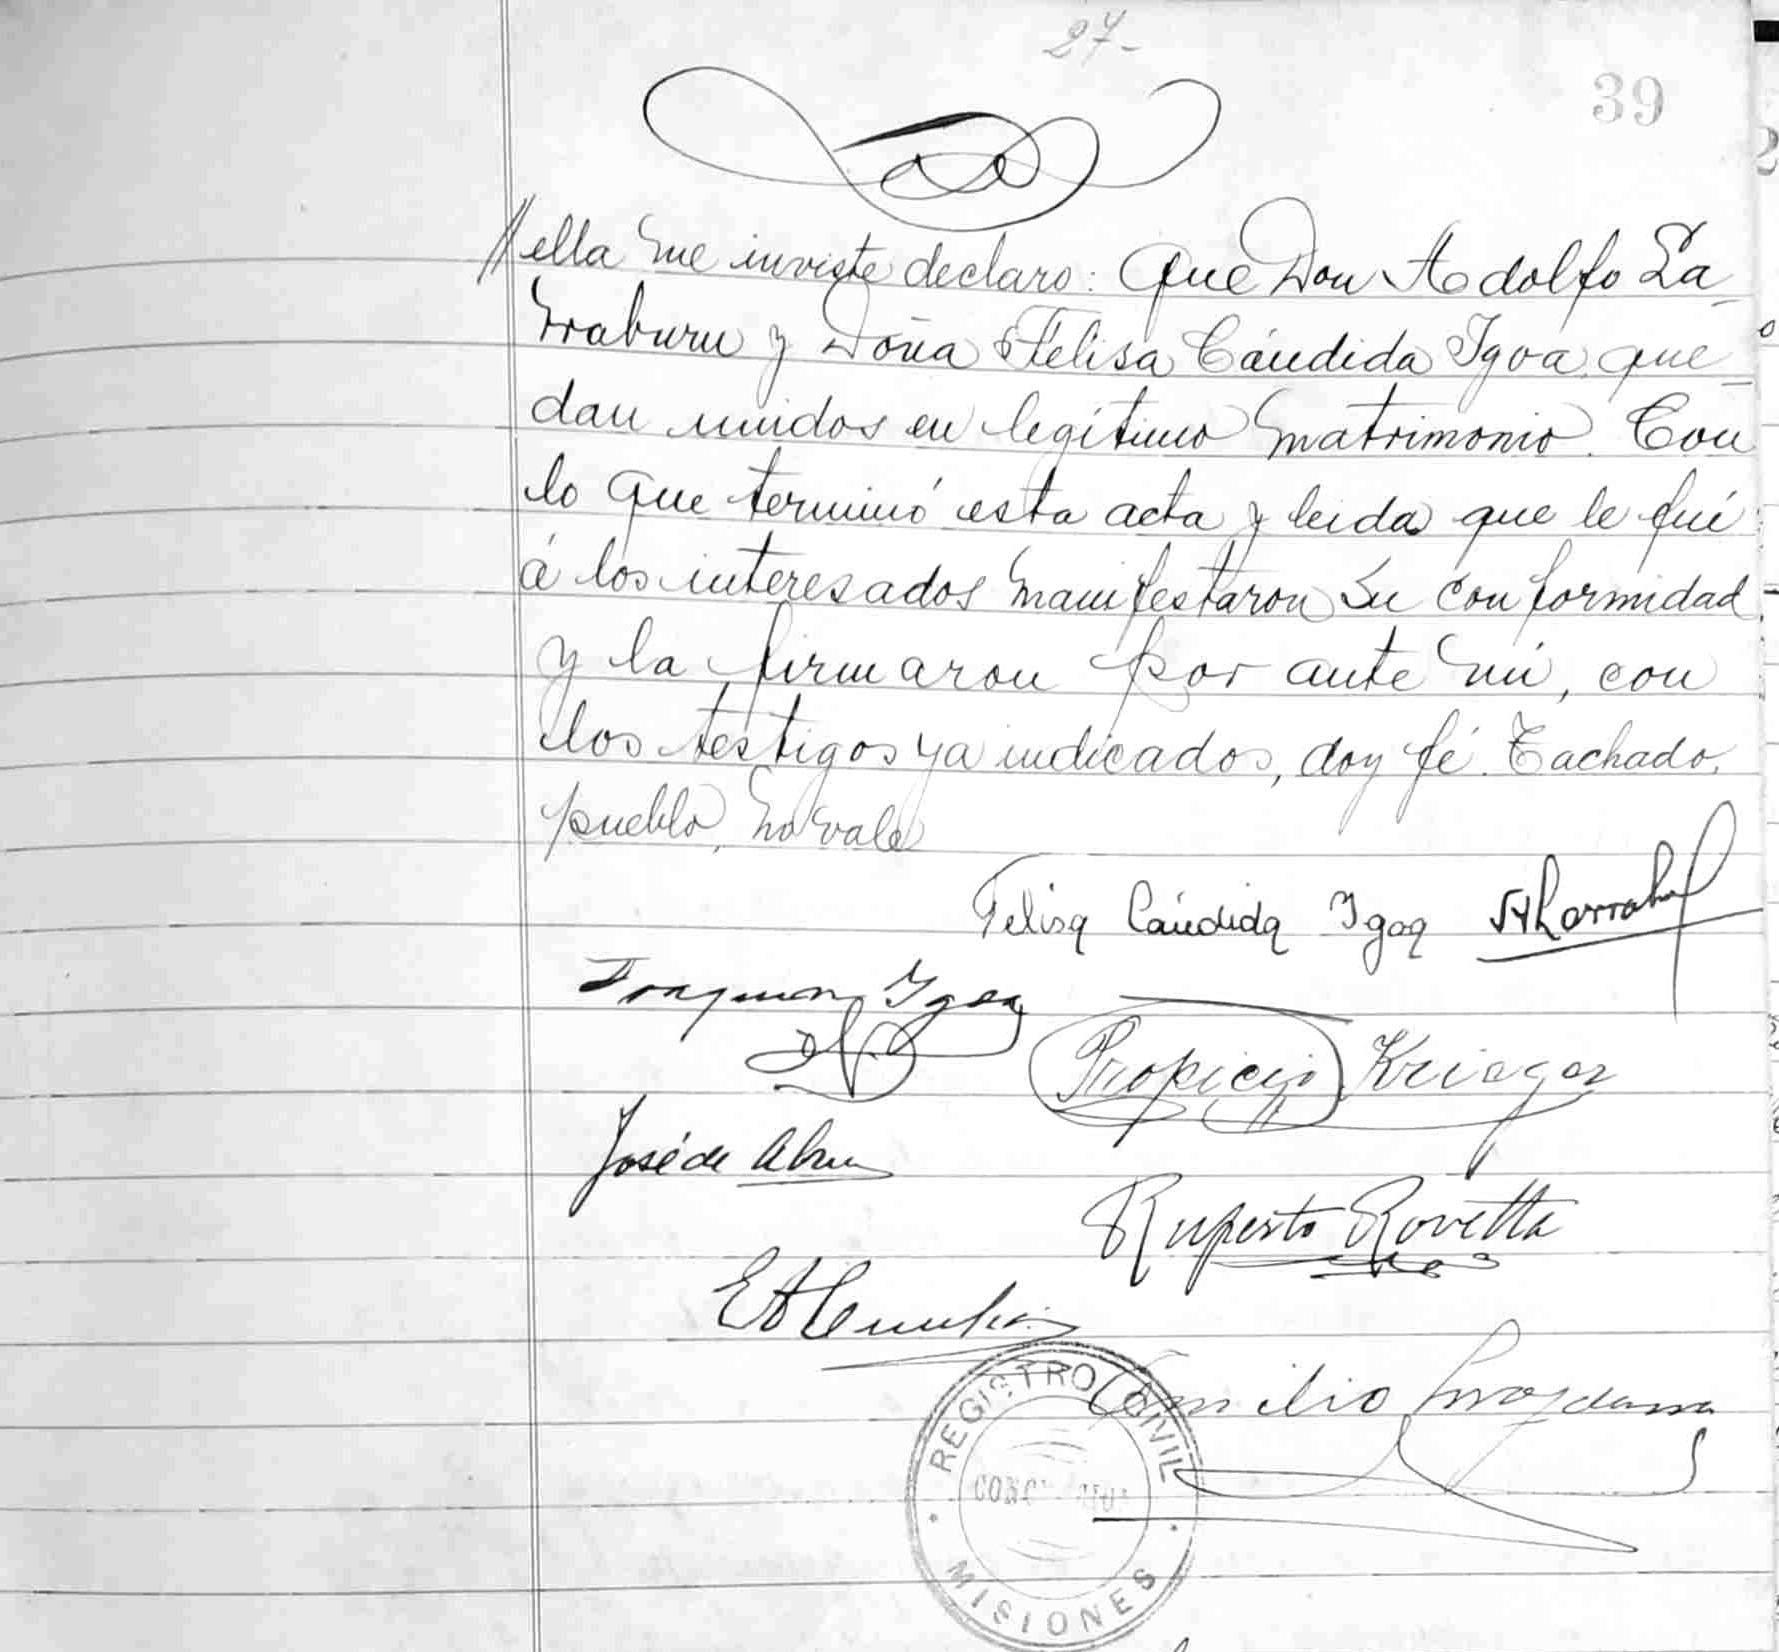 27-
39
// ella me inviste declaro: Que Don Adolfo La-
rraburu y Doña Felisa Cándida Igoa, que-
dan unidos en legítimo matrimonio. Con
lo que terminó esta acta y leida que le fué
á los interesados manifestaron su conformidad
y la firmaron por ante mí, con
los testigos ya indicados, doy fé. Tachado,
pueblo, no vale
Felisa Cándida Igoa
Igoa
Propicio Krieger
José de Abreu
Ruperto Rovetta
Emilio
REGISTRO CIVIL
MISIONES